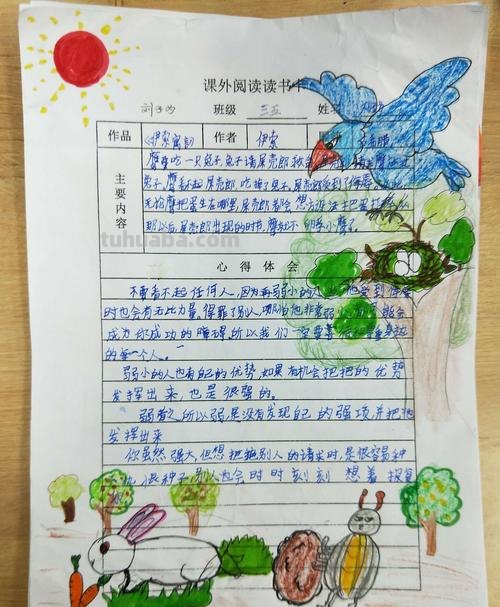 课外阅读读书卡
班级 三五 姓名
作品 《伊索寓言》 作者 伊索
主要内容
鹰要吃一只兔子兔子请屎壳郎救
兔子,鹰看不起屎壳郎 吃掉了兔子,屎壳郎受到了侮辱
无论鹰把蛋生在哪里,屎壳郎都会想方设法把蛋打
那以后,屎壳郎出现的时节,鹰是不孵小鹰了。
tuhuaba.com
心得体会
不要看不起任何人,因为再弱小的人 他受到侮辱
时也会有无比力量,得罪了别人,哪怕他非常弱小 能会
成为你成功的障碍,所以我们一定要善 身边
的每一个人。
弱小的人也有自己的优势,如果有机会把把的优势
发挥出来,也是很强的。
弱者之所以弱是没有发现自己的强项,并把他
发挥出来
你虽然强大但想把拒别人的请求时,是很容易种
下仇恨种子,别人也会时时刻刻 想着报复